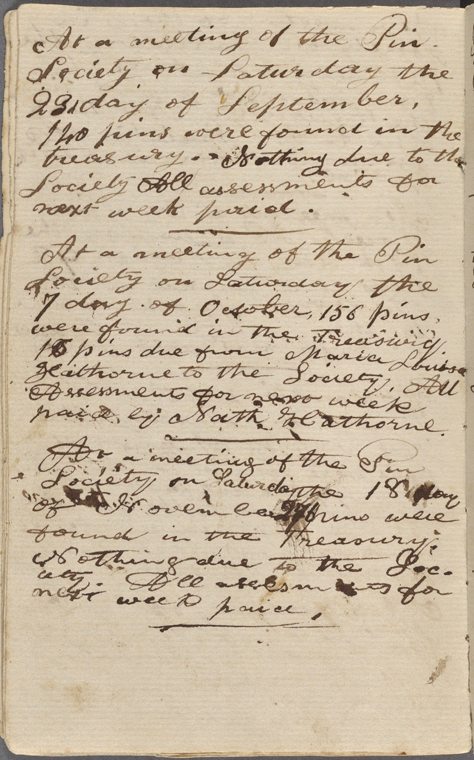 At a meeting of the Pin
Society on Saturday the
23 day of September,
140 pins were found in the
treasury. Nothing due to the
Society All assessments for
next week paid.
At a meeting of the Pin
Society on Saturday the
7 day of October, 156 pins
were found in the Treasury
16 pins due from Maria Louisa
Hathorne to the Society. All
Assessments for next week
paid by Nath. Hathorne.
At a meeting of the Pin
Society on Saturday the 18 day
of November pins were
found in the Treasury.
Nothing due to the Soc-
iety. All assesments for
next week paid.